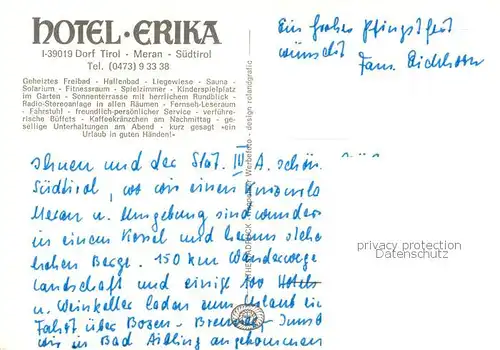 HOTEL · ERIKA
I-39019 Dorf Tirol - Meran - Südtirol
Tel. (0473) 9 33 38
Geheiztes Freibad - Hallenbad - Liegewiese - Sauna -
Solarium - Fitnessraum - Spielzimmer - Kinderspielplatz
im Garten - Sonnenterrasse mit herrlichem Rundblick -
Radio-Stereoanlage in allen Räumen - Fernseh-Leseraum
- Fahrstuhl - freundlich-persönlicher Service - verführe-
rische Büffets - Kaffeekränzchen am Nachmittag - ge-
sellige Unterhaltungen am Abend - kurz gesagt «ein
Urlaub in guten Händen!»
Ein frohes Pfingstfest
wünscht
Fam. Eichhorn
Werbefoto - design rolandgrafic
Ihnen und der Stat. III A. schön.
Südtirol, wo wir einen
Meran u. Umgebung sind wunders
in einem Kessel und herum siehe
hohen Berge. 150 km Wanderwege
Landschaft und einige 100 Hotels
u. Weinkeller laden zum Urlaub ein
Fahrt über Bozen - Brenner - Innsb
wir in Bad Aibling angekommen
privacy protection
Datenschutz